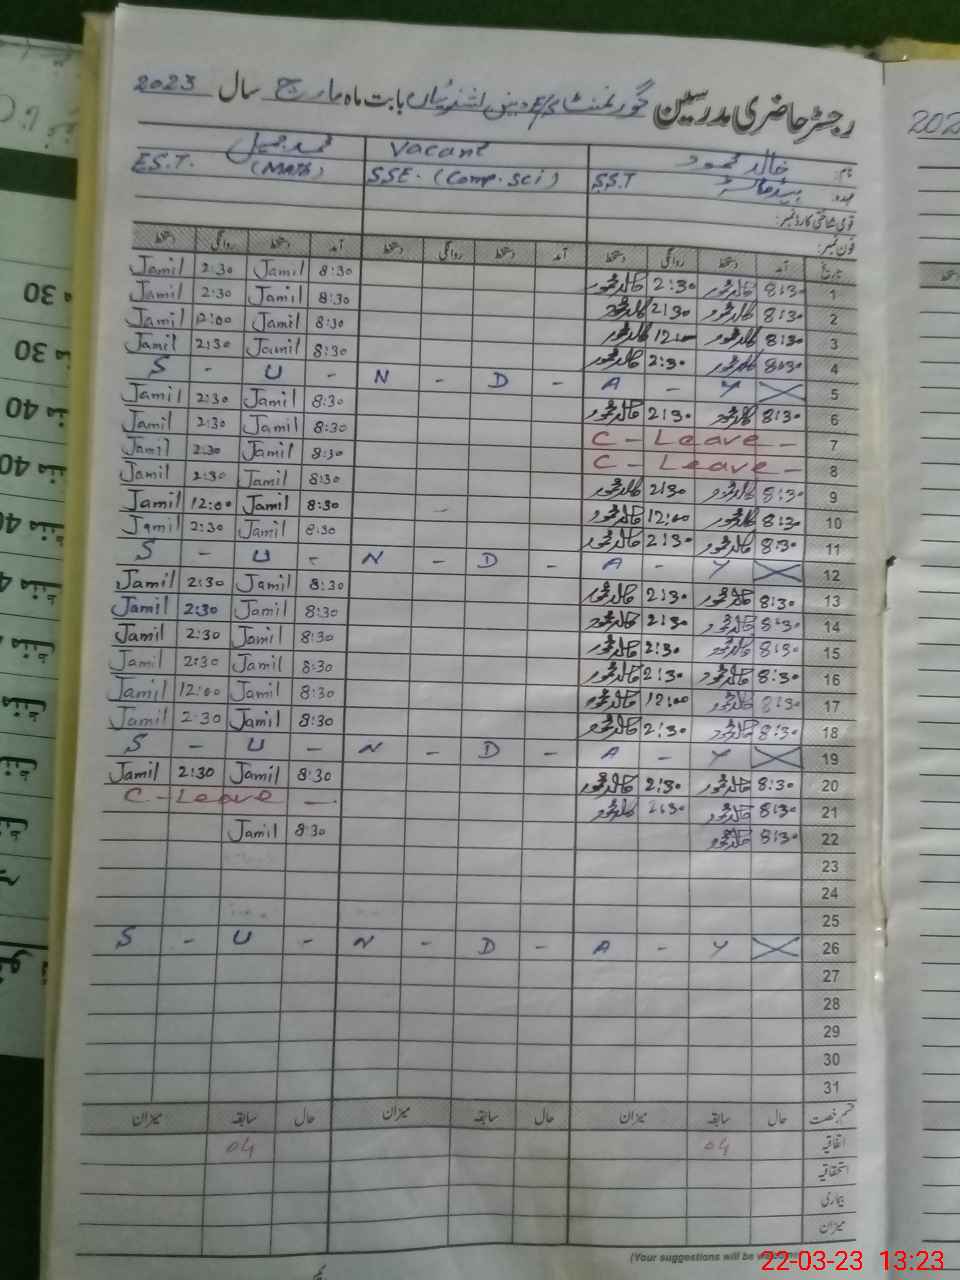 رجسٹر حاضری مدرسین گورنمنٹ بابت ماہ مارچ سال 2023
نام: خالد محمود Vacant محمد جمیل
عہدہ: S.S.T SSE. (Comp. Sci) E.S.T. (Math)
قومی شناختی کارڈ نمبر:
فون نمبر:
تاریخ آمد دستخط روانگی دستخط آمد دستخط روانگی دستخط آمد دستخط روانگی دستخط
1 8:30 خالد محمود 2:30 خالد محمود 8:30 Jamil 2:30 Jamil
2 8:30 خالد محمود 2:30 خالد محمود 8:30 Jamil 2:30 Jamil
3 8:30 خالد محمود 12:00 خالد محمود 8:30 Jamil 12:00 Jamil
4 8:30 خالد محمود 2:30 خالد محمود 8:30 Jamil 2:30 Jamil
5 S - U - N - D - A - Y
6 8:30 خالد محمود 2:30 خالد محمود 8:30 Jamil 2:30 Jamil
7 C - Leave - 8:30 Jamil 2:30 Jamil
8 C - Leave - 8:30 Jamil 2:30 Jamil
9 8:30 خالد محمود 2:30 خالد محمود 8:30 Jamil 2:30 Jamil
10 8:30 خالد محمود 12:00 خالد محمود 8:30 Jamil 12:00 Jamil
11 8:30 خالد محمود 2:30 خالد محمود 8:30 Jamil 2:30 Jamil
12 S - U - N - D - A - Y
13 8:30 خالد محمود 2:30 خالد محمود 8:30 Jamil 2:30 Jamil
14 8:30 خالد محمود 2:30 خالد محمود 8:30 Jamil 2:30 Jamil
15 8:30 خالد محمود 2:30 خالد محمود 8:30 Jamil 2:30 Jamil
16 8:30 خالد محمود 2:30 خالد محمود 8:30 Jamil 2:30 Jamil
17 8:30 خالد محمود 12:00 خالد محمود 8:30 Jamil 12:00 Jamil
18 8:30 خالد محمود 2:30 خالد محمود 8:30 Jamil 2:30 Jamil
19 S - U - N - D - A - Y
20 8:30 خالد محمود 2:30 خالد محمود 8:30 Jamil 2:30 Jamil
21 8:30 خالد محمود 2:30 خالد محمود C - Leave -
22 8:30 خالد محمود 8:30 Jamil
23
24
25
26 S - U - N - D - A - Y
27
28
29
30
31
قسم رخصت حال سابقہ میزان حال سابقہ میزان حال سابقہ میزان
اتفاقیہ 04 04
استحقاقیہ
بیماری
میزان
(Your suggestions will be welcome
22-03-23 13:23
202
30
30
40
40